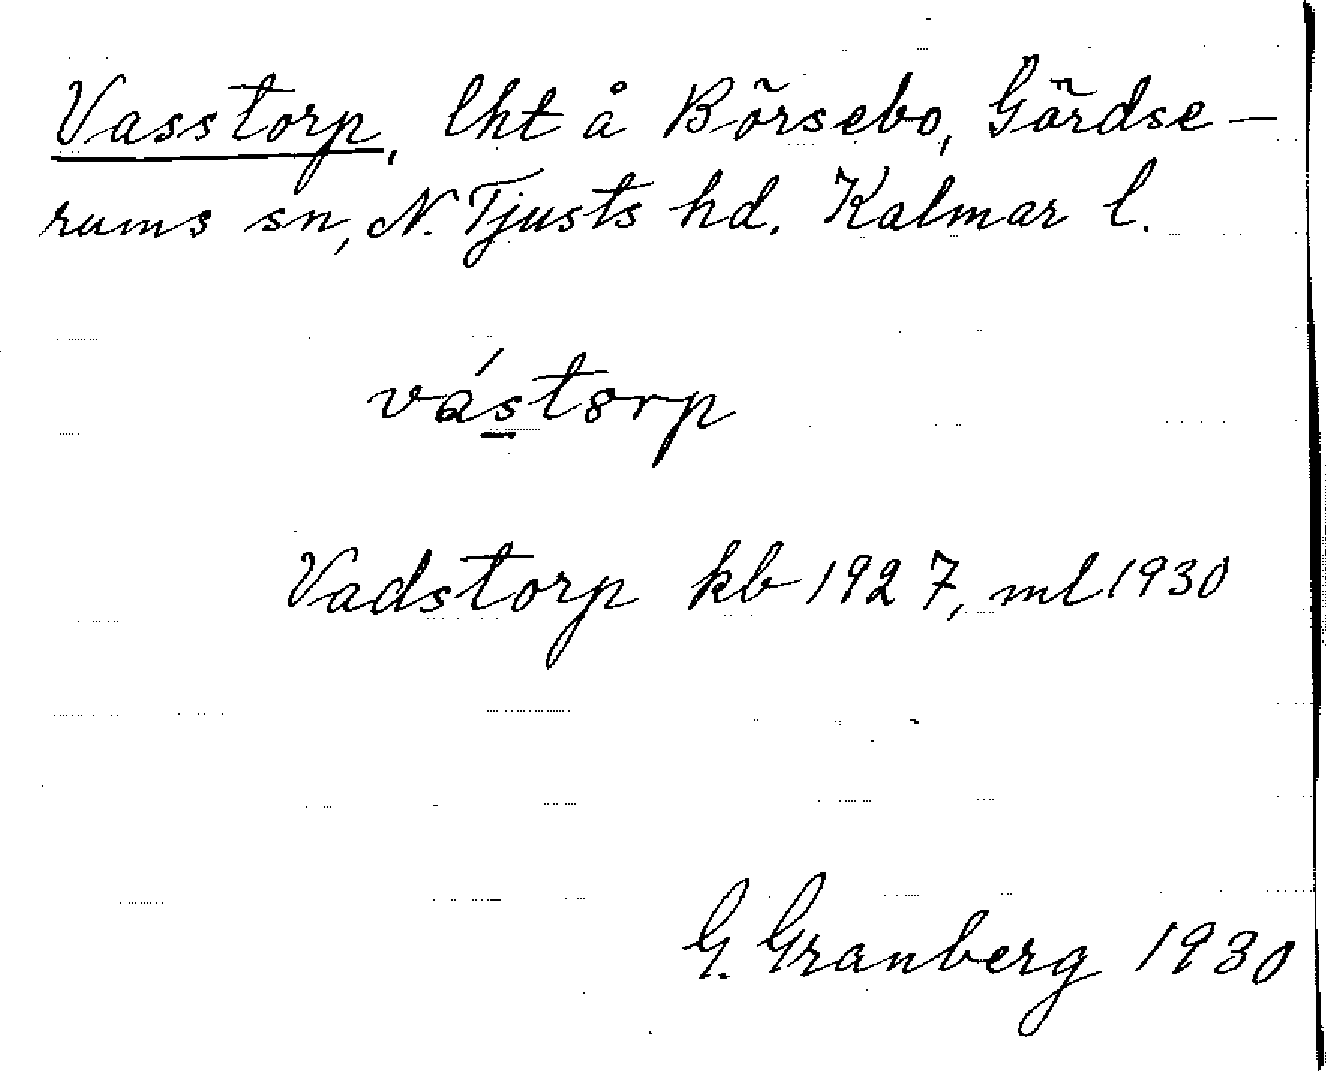 Vasstorp, lht å Börsebo, Gärdse-
rums sn, N. Tjusts hd. Kalmar l.
vástorp
Vadstorp kb 1927, ml 1930
G. Granberg 1930